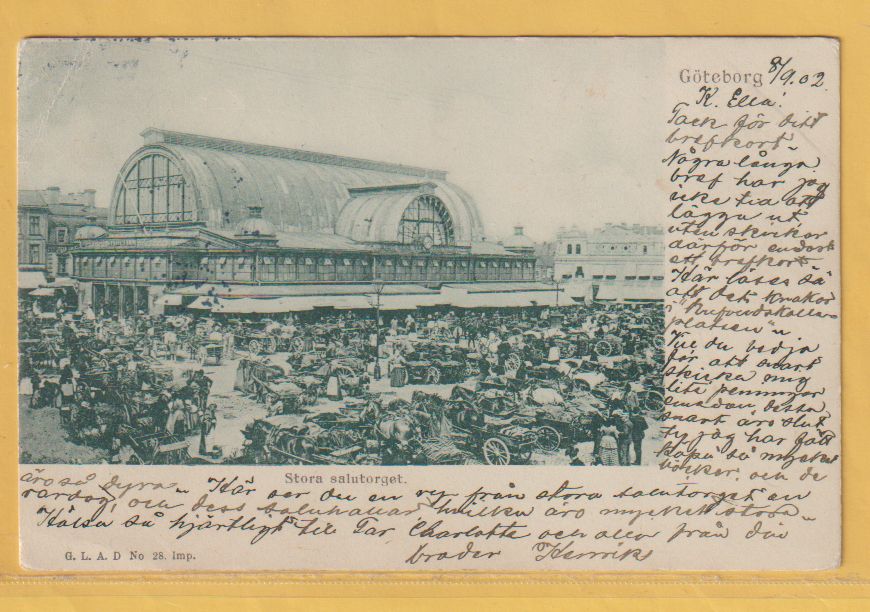 Göteborg 8/9.02.
K. Ella!
Tack för ditt
brefkort
Några långa
bref har jag
icke tid att
lägga ut
utan skickar
därför endast
ett brefkort
Här låses så
att det knakar
i "Hufvudskalle-
platsen"
Vill du bedja
far att snart
skicka mig
lite penningar
emedan dessa
snart äro slut
ty jag har fått
köpa så mycket
böcker, och de
äro så dyra
Stora salutorget.
Här ser du en vy från stora salutorget en
vardag, och dess saluhallar hvilka äro mycket stora
Hälsa så hjärtligt till Far Charlotte och alla från din
broder Henrik
G. L. A. D No 28. Imp.